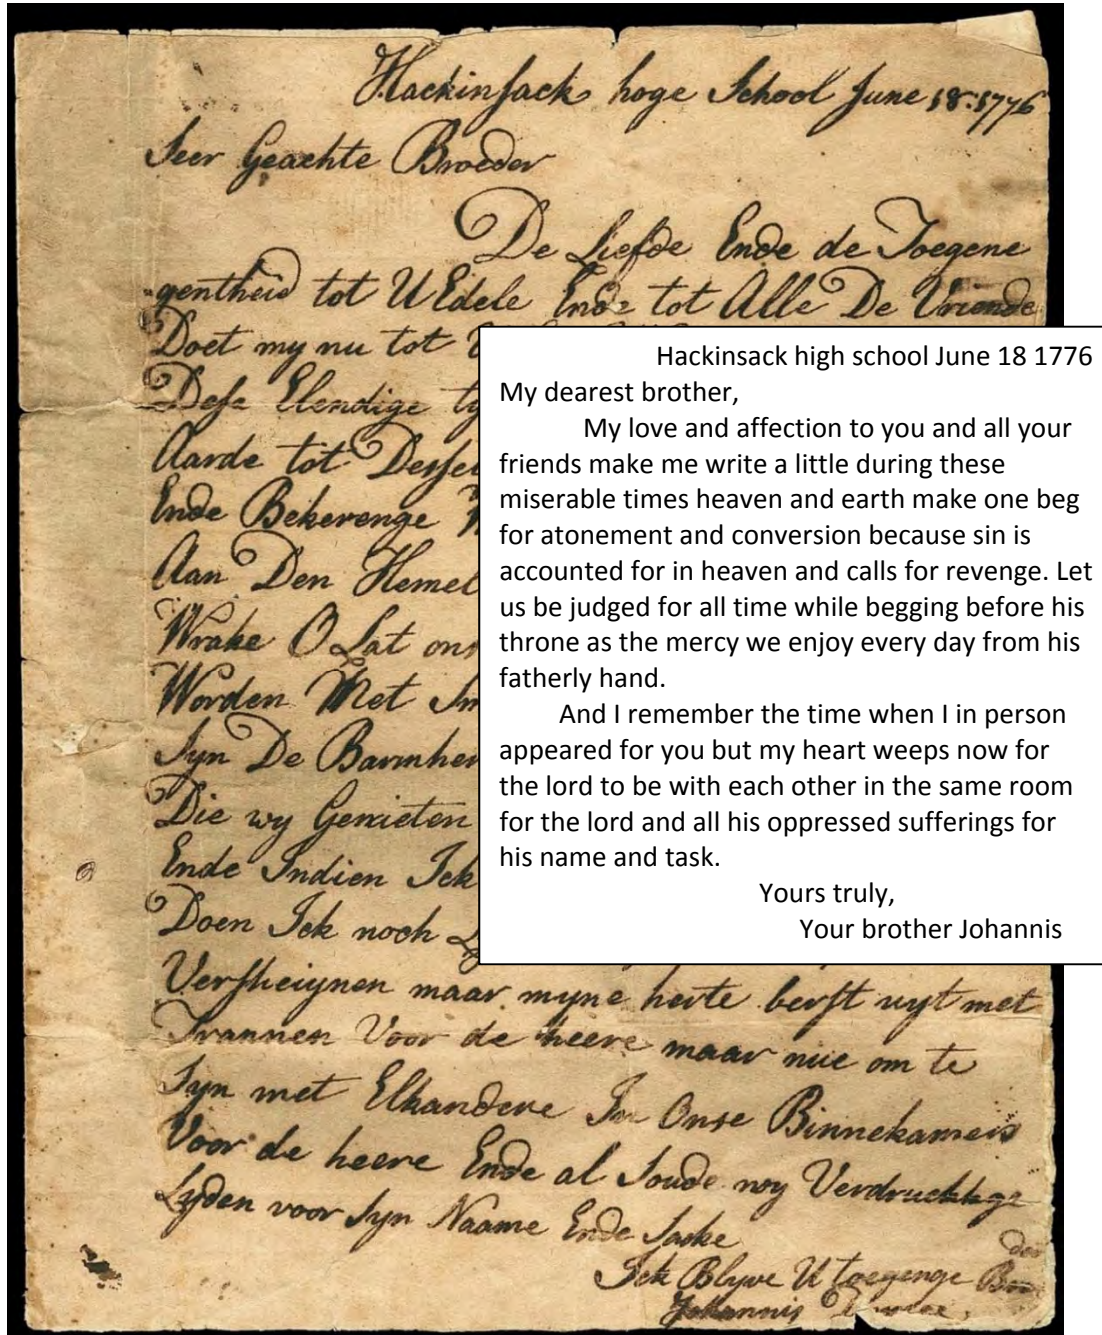 Hackinsack hoge School June 18. 1776
Seer Geachte Broeder
De Liefde Ende de Toegene
gentheid tot U Edele Ende tot Alle De Vriende
Doet my nu tot
Dese Elendige
Aarde tot
Ende Bekerenge
Aan Den Hemel
Wrake O Lat ons
Worden Met
Syn De
Die wy Genieten
Ende Indien Ick
Doen Ick noch
Versheijnen maar myne herte berst uyt met
Trannen Voor de heere maar nue om te
Syn met Elkandere In Onse Binnekamers
Voor de heere Ende al Soude wy Verdruckkge
Lyden voor Syn Naame Ende Sacke
Ick Blyve U toegenge
Johannis
Hackinsack high school June 18 1776
My dearest brother,
My love and affection to you and all your
friends make me write a little during these
miserable times heaven and earth make one beg
for atonement and conversion because sin is
accounted for in heaven and calls for revenge. Let
us be judged for all time while begging before his
throne as the mercy we enjoy every day from his
fatherly hand.
And I remember the time when I in person
appeared for you but my heart weeps now for
the lord to be with each other in the same room
for the lord and all his oppressed sufferings for
his name and task.
Yours truly,
Your brother Johannis